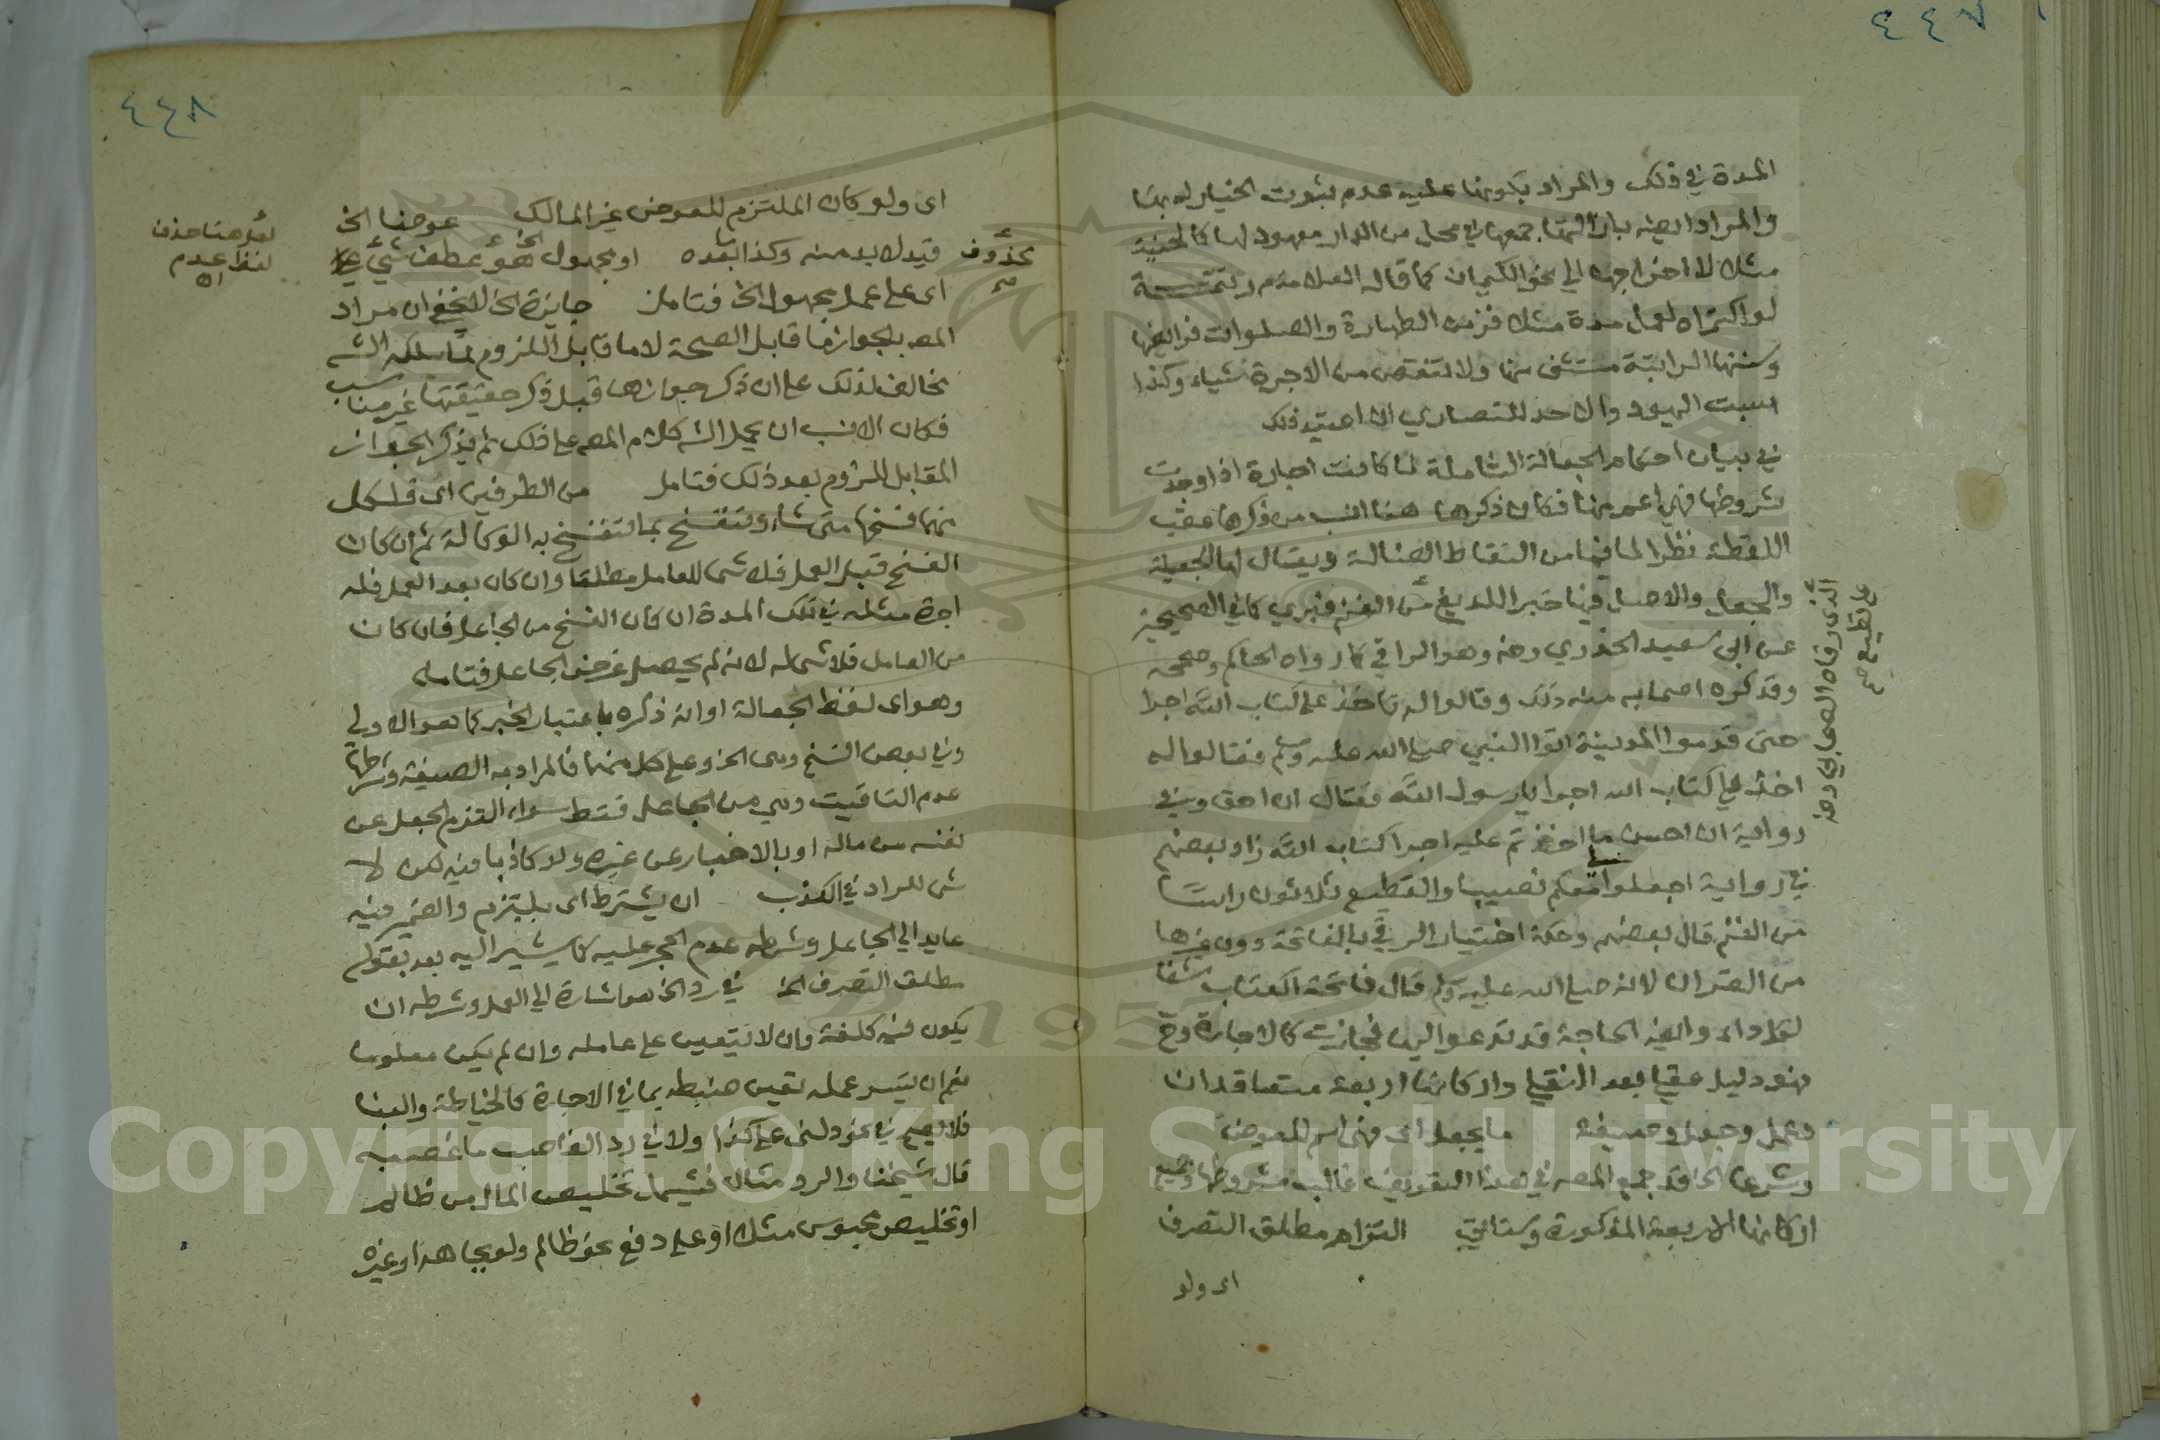 ٤٤٧
المدة في ذلك والمراد بكونها عليه عدم ثبوت الخيار له بها
والمراد ايضا بازالتها جمعها في محل من الدار معهود لها كالخبية
مثلا لا اخراجها الى نحو الكيمان كما قاله العلامة م ر تتمة
لو اكتراه لعمل مدة مثلا فزمن الطهارة والصلوات فرائضها
وسننها الراتبة مستثنى منها ولا تنقص من الاجرة شياء وكذا
سبت اليهود والاحد للنصارى ان اعتيد ذلك
في بيان احكام الجعالة الشاملة لما كانت اجارة اذا وجدت
شروطها فهي اعم منها فكان ذكرها هنا انسب من ذكرها عقب
اللقطة نظرا لما فيها من التقاط الضالة ويقال لها الجعيلة
والجعل والاصل فيها خبر اللديغ من الغنم فبري كما في الصحيحين
عن ابي سعيد الخدري رضه وهو الراقي كما رواه الحاكم وصححه
وقد كره اصحابه منه ذلك وقالوا له تاخذ على كتاب الله اجرا
حتى قدموا المدينة اتوا النبي صلى الله عليه وسلم فقالوا له
اخذ على كتاب الله اجرا يا رسول الله فقال ان احق وفي
رواية ان احسن ما اخذتم عليه اجرا كتاب الله زاد بعضهم
في رواية اجعلوا لي معكم نصيبا والقطيع ثلاثون راسا
من الغنم قال بعضهم وحكمة اختيار الرقي بالفاتحة دون غيرها
من القران لانه صلى الله عليه وسلم قال فاتحة الكتاب شفا
لكل داء وايضا الحاجة قد تدعو اليها فجازت كالاجارة وح
فهو دليل عقلي بعد النقلي واركانها اربعة متعاقدان
وعمل وجعل وصيغة ما يجعل اي فهي اسم للعوض
وشرعا الخ قد جمع المصه في هذا التعريف غالب شروطها وجميع
اركانها الاربعة المذكورة وستاتي التزام مطلق التصرف
اى ولو
الذي رقاه الصحابي رضه
على قطيع صح
٤٤٨
اى ولو كان الملتزم للعوض غير المالك عوضا الخ
قيد لا بد منه وكذا ما بعده او مجهول الخ هو عطف شيء على
محذوف
اى على عمل مجهول الخ فتامل جايزة الخ لا يخفى ان مراد
المصه بالجواز ما قابل الصحة لا ما قابل اللزوم فما سلكه الشه
مخالف لذلك على ان ذكر جوازها قبل ذكر حقيقتها غير مناسب
فكان الانسب ان يحمل الشه كلام المصه على ذلك ثم يذكر الجواز
المقابل للزوم بعد ذلك فتامل من الطرفين اى فلكل
منهما فسخها متى شاء وتنفسخ بما تنفسخ به الوكالة ثم ان كان
الفسخ قبل العمل فلا شى للعامل مطلقا وان كان بعد العمل فله
اجرة مثله في تلك المدة ان كان الفسخ من الجاعل فان كان
من العامل فلا شى له لانه لم يحصل غرض الجاعل فتامله
وهو اى لفظ الجعالة او انه ذكره باعتبار الخبر كما هو الاولى
وفي بعض النسخ وهى الخ وعلى كل منهما فالمراد به الصيغة وشرطها
عدم التاقيت وهي من الجاعل فقط سواء التزم الجعل عن
نفسه من ماله او بالاخبار عن غيره ولو كاذبا فيه لكن لا
شى للراد في الكذب ان يشترط اى يلتزم والضمير فيه
عايد الى الجاعل وشرطه عدم الحجر عليه كما يشير اليه بعد بقوله
مطلق التصرف الخ في رد الخ هو اشارة الى العمل وشرطه ان
يكون فيه كلفة وان لا يتعين على عامله وان لم يكن معلوما
نعم ان تيسر عمله تعين ضبطه بما في الاجارة كالخياطة والبنا
فلا يصح في نحو دلنى على كذا ولا في رد الغاصب ما غصبه
قال شيخنا والرد مثال فيشمل تخليص المال من ظالم
او تخليص محبوس مثلا او على دفع نحو ظالم ولو بجاهه او غيره
لعل هنا حذف
لفظ عدم
اه